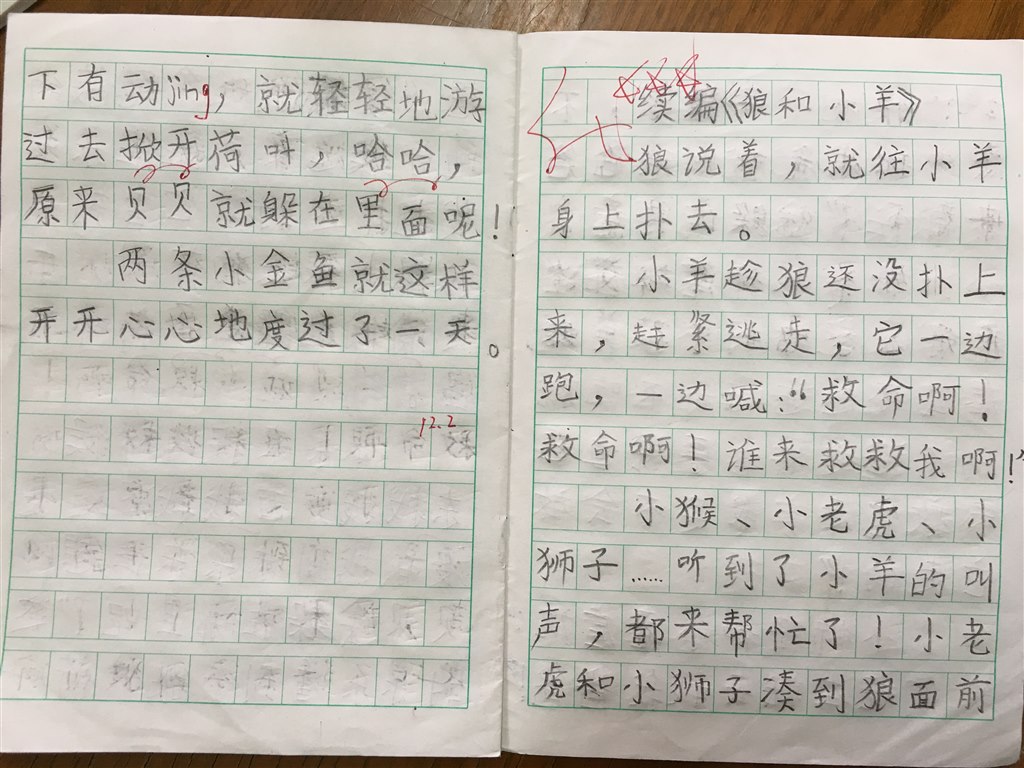 下有动jing，就轻轻地游
过去掀开荷叫，哈哈，
原来贝贝就躲在里面呢！
两条小金鱼就这样
开开心心地度过了一天。
12.2
续编《狼和小羊》
狼说着，就往小羊
身上扑去。
小羊趁狼还没扑上
来，赶紧逃走，它一边
跑，一边喊：“救命啊！
救命啊！谁来救救我啊！”
小猴、小老虎、小
狮子……听到了小羊的叫
声，都来帮忙了！小老
虎和小狮子凑到狼面前